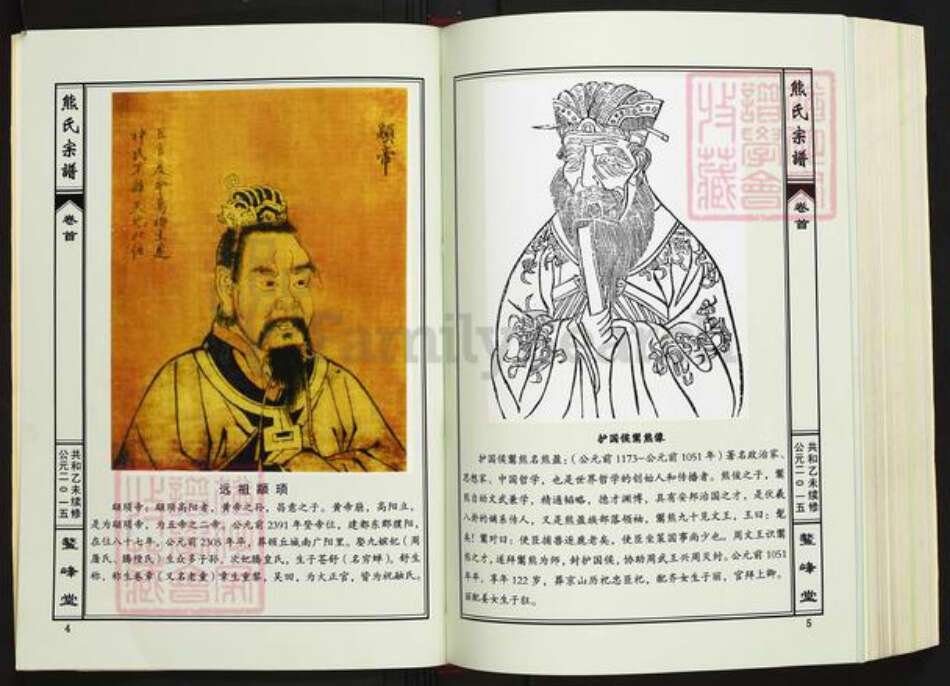 熊氏宗谱
卷首
公元二〇一五
共和乙未续修
鳌峰堂
4
顓帝
远祖颛顼
颛顼帝，颛顼高阳者，黄帝之孙，昌意之子。黄帝崩，高阳立，
是为颛顼帝，为五帝之二帝。公元前2391年登帝位，建都东郡濮阳，
在位八十七年，公元前2305年卒，葬顿丘城南广阳里。娶九嫔妃（周
唐氏、腾隍氏）生众多子孙，次妃腾皇氏，生子苍舒（名穷蝉）。舒生
称，称生卷章（又名老童）章生重黎、吴回，为火正官，皆为祝融氏。
熊氏宗谱
卷首
公元二〇一五
共和乙未续修
鳌峰堂
5
护国侯鬻熊像
护国侯鬻熊名熊盈：（公元前1173-公元前1051年）著名政治家、
思想家、中国哲学，也是世界哲学的创始人和传播者。熊侯之子，鬻
熊自幼文武兼学，精通韬略，德才渊博，具有安邦治国之才，是伏羲
八卦的嫡系传人，又是熊盈族部落领袖。鬻熊九十见文王，王曰：髦
矣！鬻对曰：使臣捕兽逐鹿老矣，使臣坐策国事尚少也。周文王识鬻
熊之才，遂拜鬻熊为师，封护国侯，协助周武王兴周灭纣。公元前1051
年卒，享年122岁，葬京山历祀忠臣祀，配乔女生子丽，官拜上卿。
丽配姜女生子狂。
谱学会
收藏